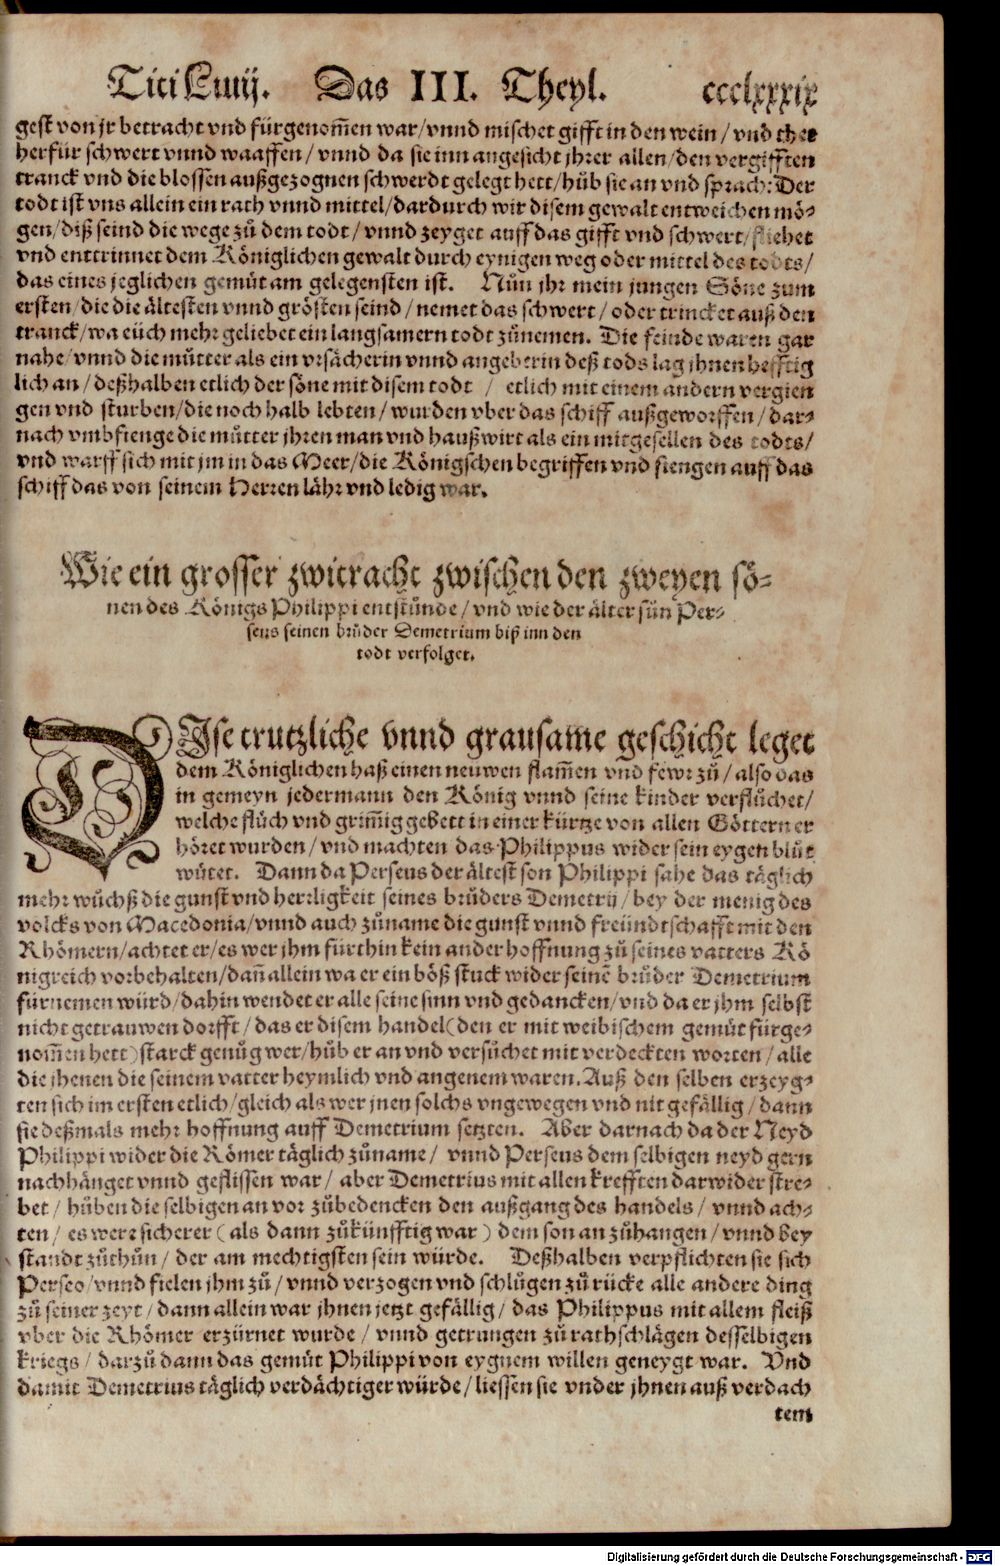 Titi Liuij. Das III. Theyl. ccclxxxix
gest von jr betracht vnd fürgenom̃en war/vnnd mischet gifft in den wein/vnd thet
herfür schwert vnnd waaffen/vnnd da sie inn angesicht jhrer allen/den vergifften
tranck vnd die blossen außgezognen schwerdt gelegt hett/hůb sie an vnd sprach: Der
todt ist vns allein ein rath vnnd mittel/dardurch wir disem gewalt entweichen mö-
gen/diß seind die wege zů dem todt/vnnd zeyget auff das gifft vnd schwert/fliehet
vnd enttrinnet dem Königlichen gewalt durch eynigen weg oder mittel des todts/
das eines jeglichen gemüt am gelegensten ist. Nůn jhr mein jungen Söne zum
ersten/die die ältesten vnnd grösten seind/nemet das schwert/oder trincket auß den
tranck/wa eüch mehr geliebet ein langsamern todt zůnemen. Die feinde waren gar
nahe/vnnd die můtter als ein vrsächerin vnnd angeberin deß tods lag jhnen hefftig
lich an/deßhalben etlich der söne mit disem todt / etlich mit einem andern vergien
gen vnd sturben/die noch halb lebten/wurden vber das schiff außgeworffen/dar-
nach vmbfienge die můtter jhren man vnd haußwirt als ein mitgesellen des todts/
vnd warff sich mit jm in das Meer/die Königschen begriffen vnd fiengen auff das
schiff das von seinem Herren lähr vnd ledig war.
Wie ein grosser zwitracht zwischen den zweyen sö-
nen des Königs Philippi entstůnde/vnd wie der älter sůn Per-
seus seinen brůder Demetrium biß inn den
todt verfolget.
DIse trutzliche vnnd grausame geschicht leget
dem Königlichen haß einen neuwen flam̃en vnd fewr zů/also das
in gemeyn jedermann den König vnnd seine kinder verflůchet/
welche flůch vnd grim̃ig gebett in einer kürtze von allen Göttern er
höret wurden/vnd machten das Philippus wider sein eygen blůt
wütet. Dann da Perseus der ältest son Philippi sahe das täglich
mehr wůchß die gunst vnd herrligkeit seines brůders Demetrij/bey der menig des
volcks von Macedonia/vnnd auch zůname die gunst vnnd freündtschafft mit den
Rhömern/achtet er/es wer jhm fürthin kein ander hoffnung zů seines vatters Kö
nigreich vorbehalten/dañ allein wa er ein böß stuck wider seinē brůder Demetrium
fürnemen würd/dahin wendet er alle seine sinn vnd gedancken/vnd da er jhm selbst
nicht getrauwen dorfft/das er disem handel(den er mit weibischem gemüt fürge-
nom̃en hett)starck genůg wer/hůb er an vnd versůchet mit verdeckten worten/alle
die jhenen die seinem vatter heymlich vnd angenem waren. Auß den selben erzeyg-
ten sich im ersten etlich/gleich als wer jnen solchs vngewegen vnd nit gefällig/dann
sie deßmals mehr hoffnung auff Demetrium setzten. Aber darnach da der Neyd
Philippi wider die Römer täglich zůname/ vnnd Perseus dem selbigen neyd gern
nachhänget vnnd geflissen war/ aber Demetrius mit allen krefften darwider stre-
bet/ hůben die selbigen an vor zůbedencken den außgang des handels/ vnnd ach-
ten/ es were sicherer ( als dann zůkünfftig war ) dem son anzůhangen/vnnd bey
standt zůthůn/ der am mechtigsten sein würde. Deßhalben verpflichten sie sich
Perseo/vnnd fielen jhm zů/vnnd verzogen vnd schlůgen zů rücke alle andere ding
zů seiner zeyt/dann allein war jhnen jetzt gefällig/das Philippus mit allem fleiß
vber die Rhömer erzürnet wurde/ vnnd getrungen zů rathschlägen desselbigen
kriegs/ darzů dann das gemüt Philippi von eygnem willen geneygt war. Vnd
damit Demetrius täglich verdächtiger würde/liessen sie vnder jhnen auß verdach
tem
Digitalisierung gefördert durch die Deutsche Forschungsgemeinschaft - DFG